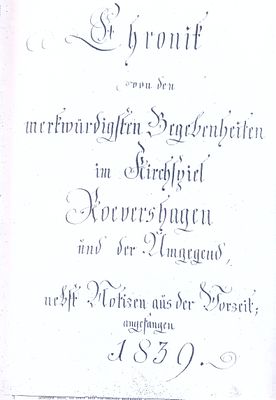 Chronik
von den
merkwürdigsten Begebenheiten
im Kirchspiel
Roevershagen
und der Umgegend,
nebst Notizen aus der Vorzeit;
angefangen
1839.